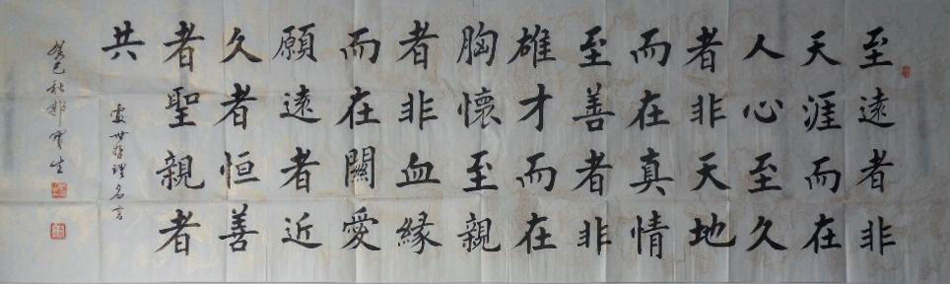 至遠者非
天涯而在
人心至久
者非天地
而在真情
至善者非
雄才而在
胸懷至親
者非血緣
而在關愛
願遠者近
久者恒善
者聖親者
共
處世哲理名言
癸巳秋